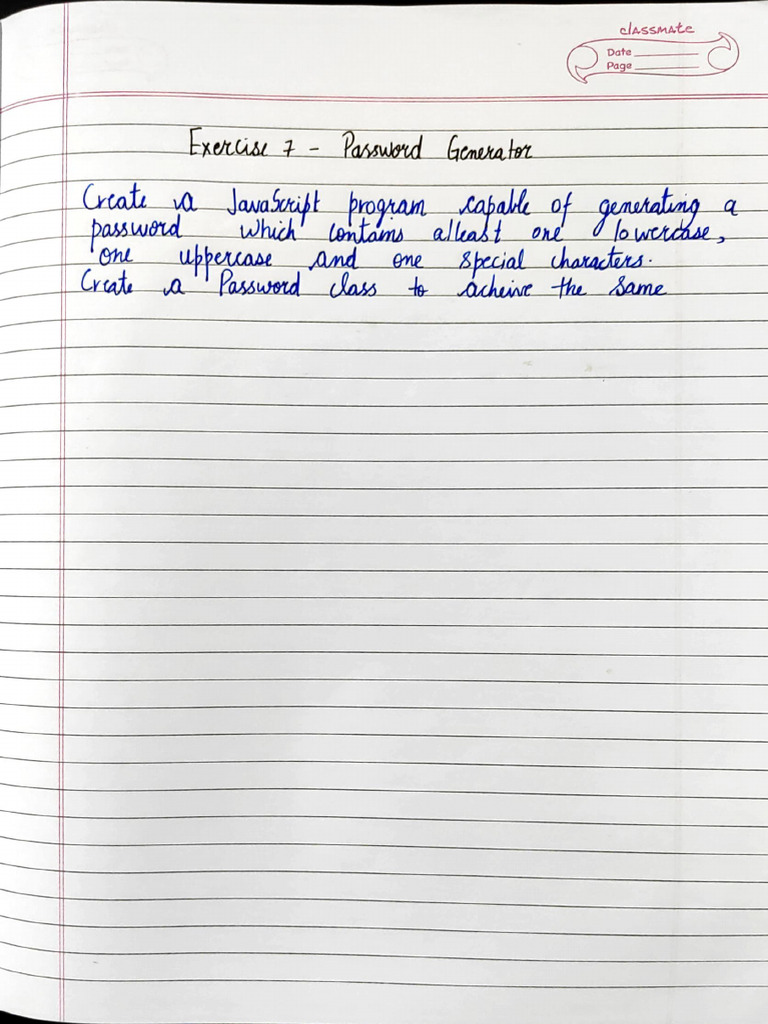 classmate
Date
Page
Exercise 7 - Password Generator
Create a JavaScript program capable of generating a
password which contains atleast one lowercase,
one uppercase and one special characters.
Create a Password class to acheive the same